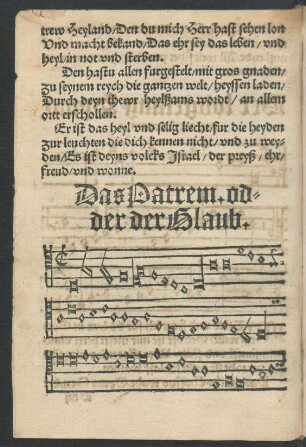 trew Heyland/Den du mich Herr hast sehen lon
Vnd macht bekand/Das ehr sey das leben/vnd
heyl/in not vnd sterben.
Den hastu allen furgestelt/mit gros gnaden/
zu seynem reych die gantzen welt/heyssen laden/
Durch deyn thewr heylsams wordt/an allem
ort erschollen.
Er ist das heyl vnd selig liecht/fur die heyden
zur leuchten die dich kennen nicht/vnd zu wey-
den/Es ist deyns volcks Israel/der preyß/ehr/
freud/vnd wonne.
Das Patrem. od-
der der Glaub.